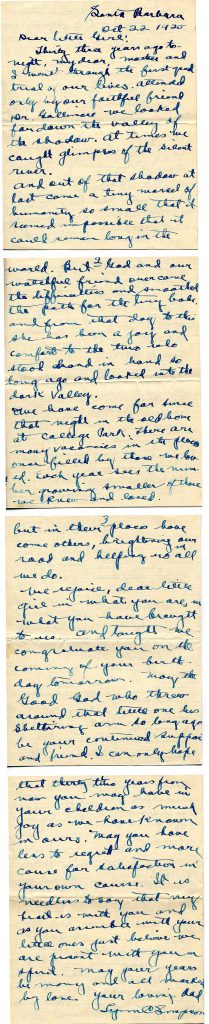 Santa Barbara
Oct 22 1920
Dear little Girl:
Thirty three years ago to-
night, my dear, mother and
I went through the first great
trial of our lives. Attended
only by our faithful friend
Dr we looked
far down the valley of
the shadow. At times we
caught glimpses of the silent
river.
And out of that shadow at
last came a tiny morsel of
humanity so small that it
seemed impossible that it
could remain long in the
2
world. But God and our
watchful friend overcame
the difficulties and smoothed
the path for the tiny babe.
and from that day to this
she has been a joy and
comfort to the two who
stood hand in hand so
long ago and looked into the
dark Valley.
We have come far since
that night in the old home
at College Park. There are
many vacancies in the places
once filled by those we lov-
ed. Each year sees the num-
ber growing smaller of those
we knew and loved.
3
but in their places have
come others, brightening our
road and helping us in all
we do.
We rejoice, dear little
girl in what you are, in
what you have brought
to us. And tonight we
congratulate you on the
coming of your birth-
day tomorrow. May the
Good God who threw
around that little one his
sheltering arm so long ago
be your continued support
and friend. I can only hope
that thirty two years from
now you may have in
your children as much
joy as we have known
in ours. May you have
less to regret and more
cause for satisfaction in
your own career. It is
needless to say that my
heart is with you and
as you assemble with your
little ones just believe we
are present with you in
spirit. May your years
be many and all marked
by love. Your loving dad
Simpson